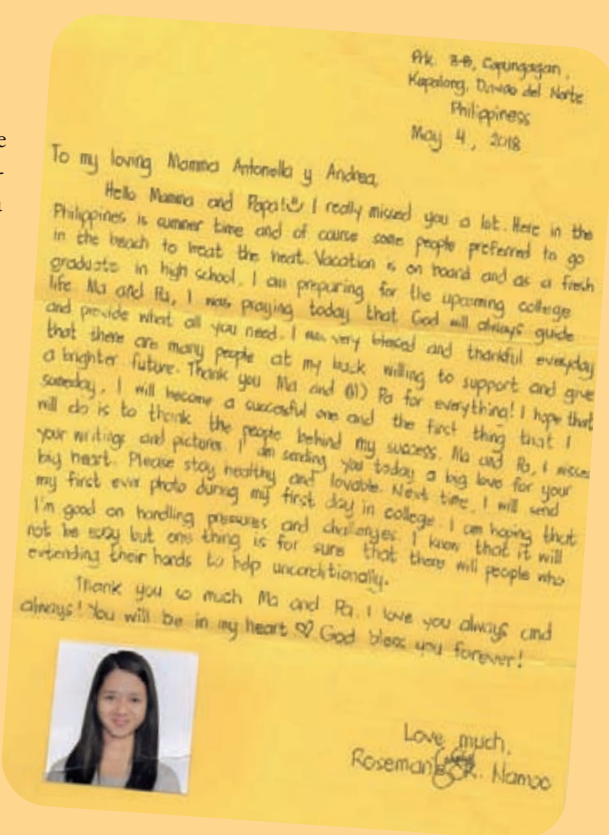 Prk. 3-B, Capungagan,
Kapalong, Davao del Norte
Philippiness
May 4, 2018
To my loving Mamma Antonella y Andrea,
Hello Mamma and Papa! I really missed you a lot. Here in the
Philippines is summer time and of course some people preferred to go
in the beach to treat the heat. Vacation is on board and as a fresh
graduate in high school, I am preparing for the upcoming college
life. Ma and Pa, I was praying today that God will always guide
and provide what all you need. I am very blessed and thankful everyday
that there are many people at my back willing to support and give
a brighter future. Thank you Ma and Pa for everything! I hope that
someday, I will become a successful one and the first thing that I
will do is to thank the people behind my success. Ma and Pa, I misses
your writings and pictures. I am sending you today a big love for your
big heart. Please stay healthy and lovable. Next time, I will send
my first ever photo during my first day in college. I am hoping that
I'm good on handling pressures and challenges. I know that it will
not be easy but one thing is for sure that there will people who
extending their hands to help unconditionally.
Thank you so much Ma and Pa. I love you always and
always! You will be in my heart God bless you forever!
Love much,
R. Namoc